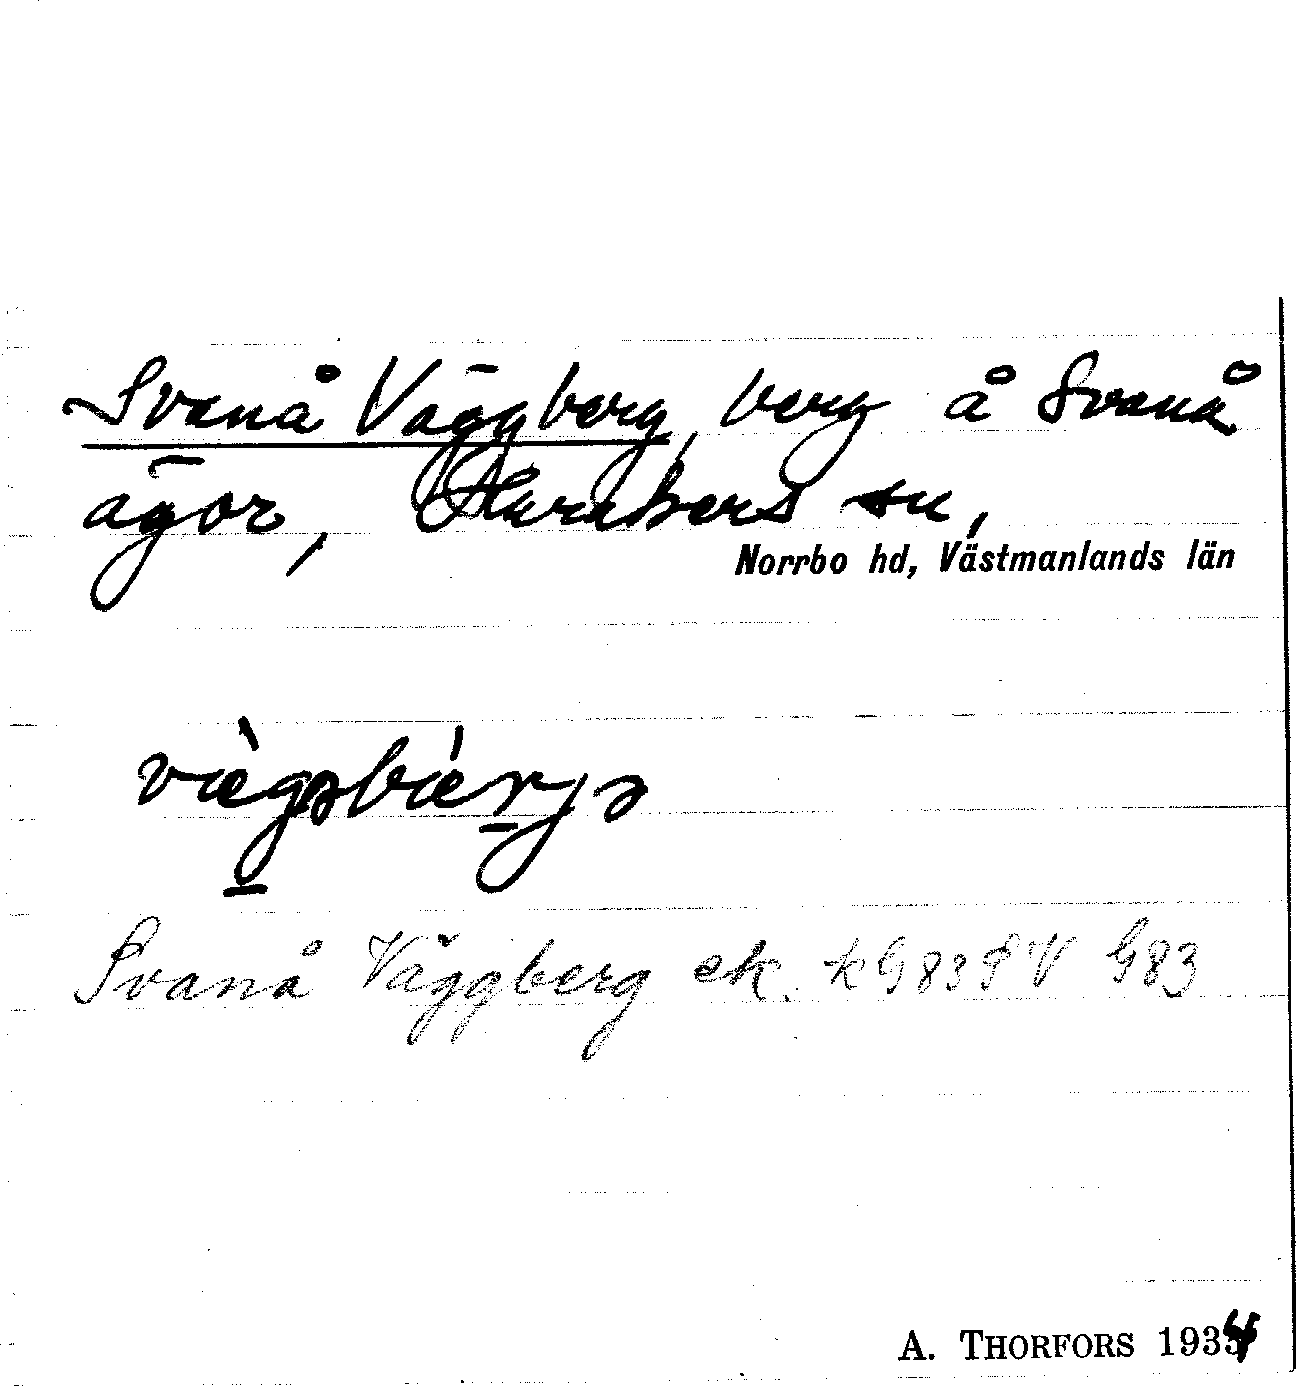 Svanå Väggberg, berg å Svanå
ägor, Harakers sn,
Norrbo hd, Västmanlands län
vægəbærjə
Svanå Väggberg ek. kG83SV G83
A. THORFORS 1934